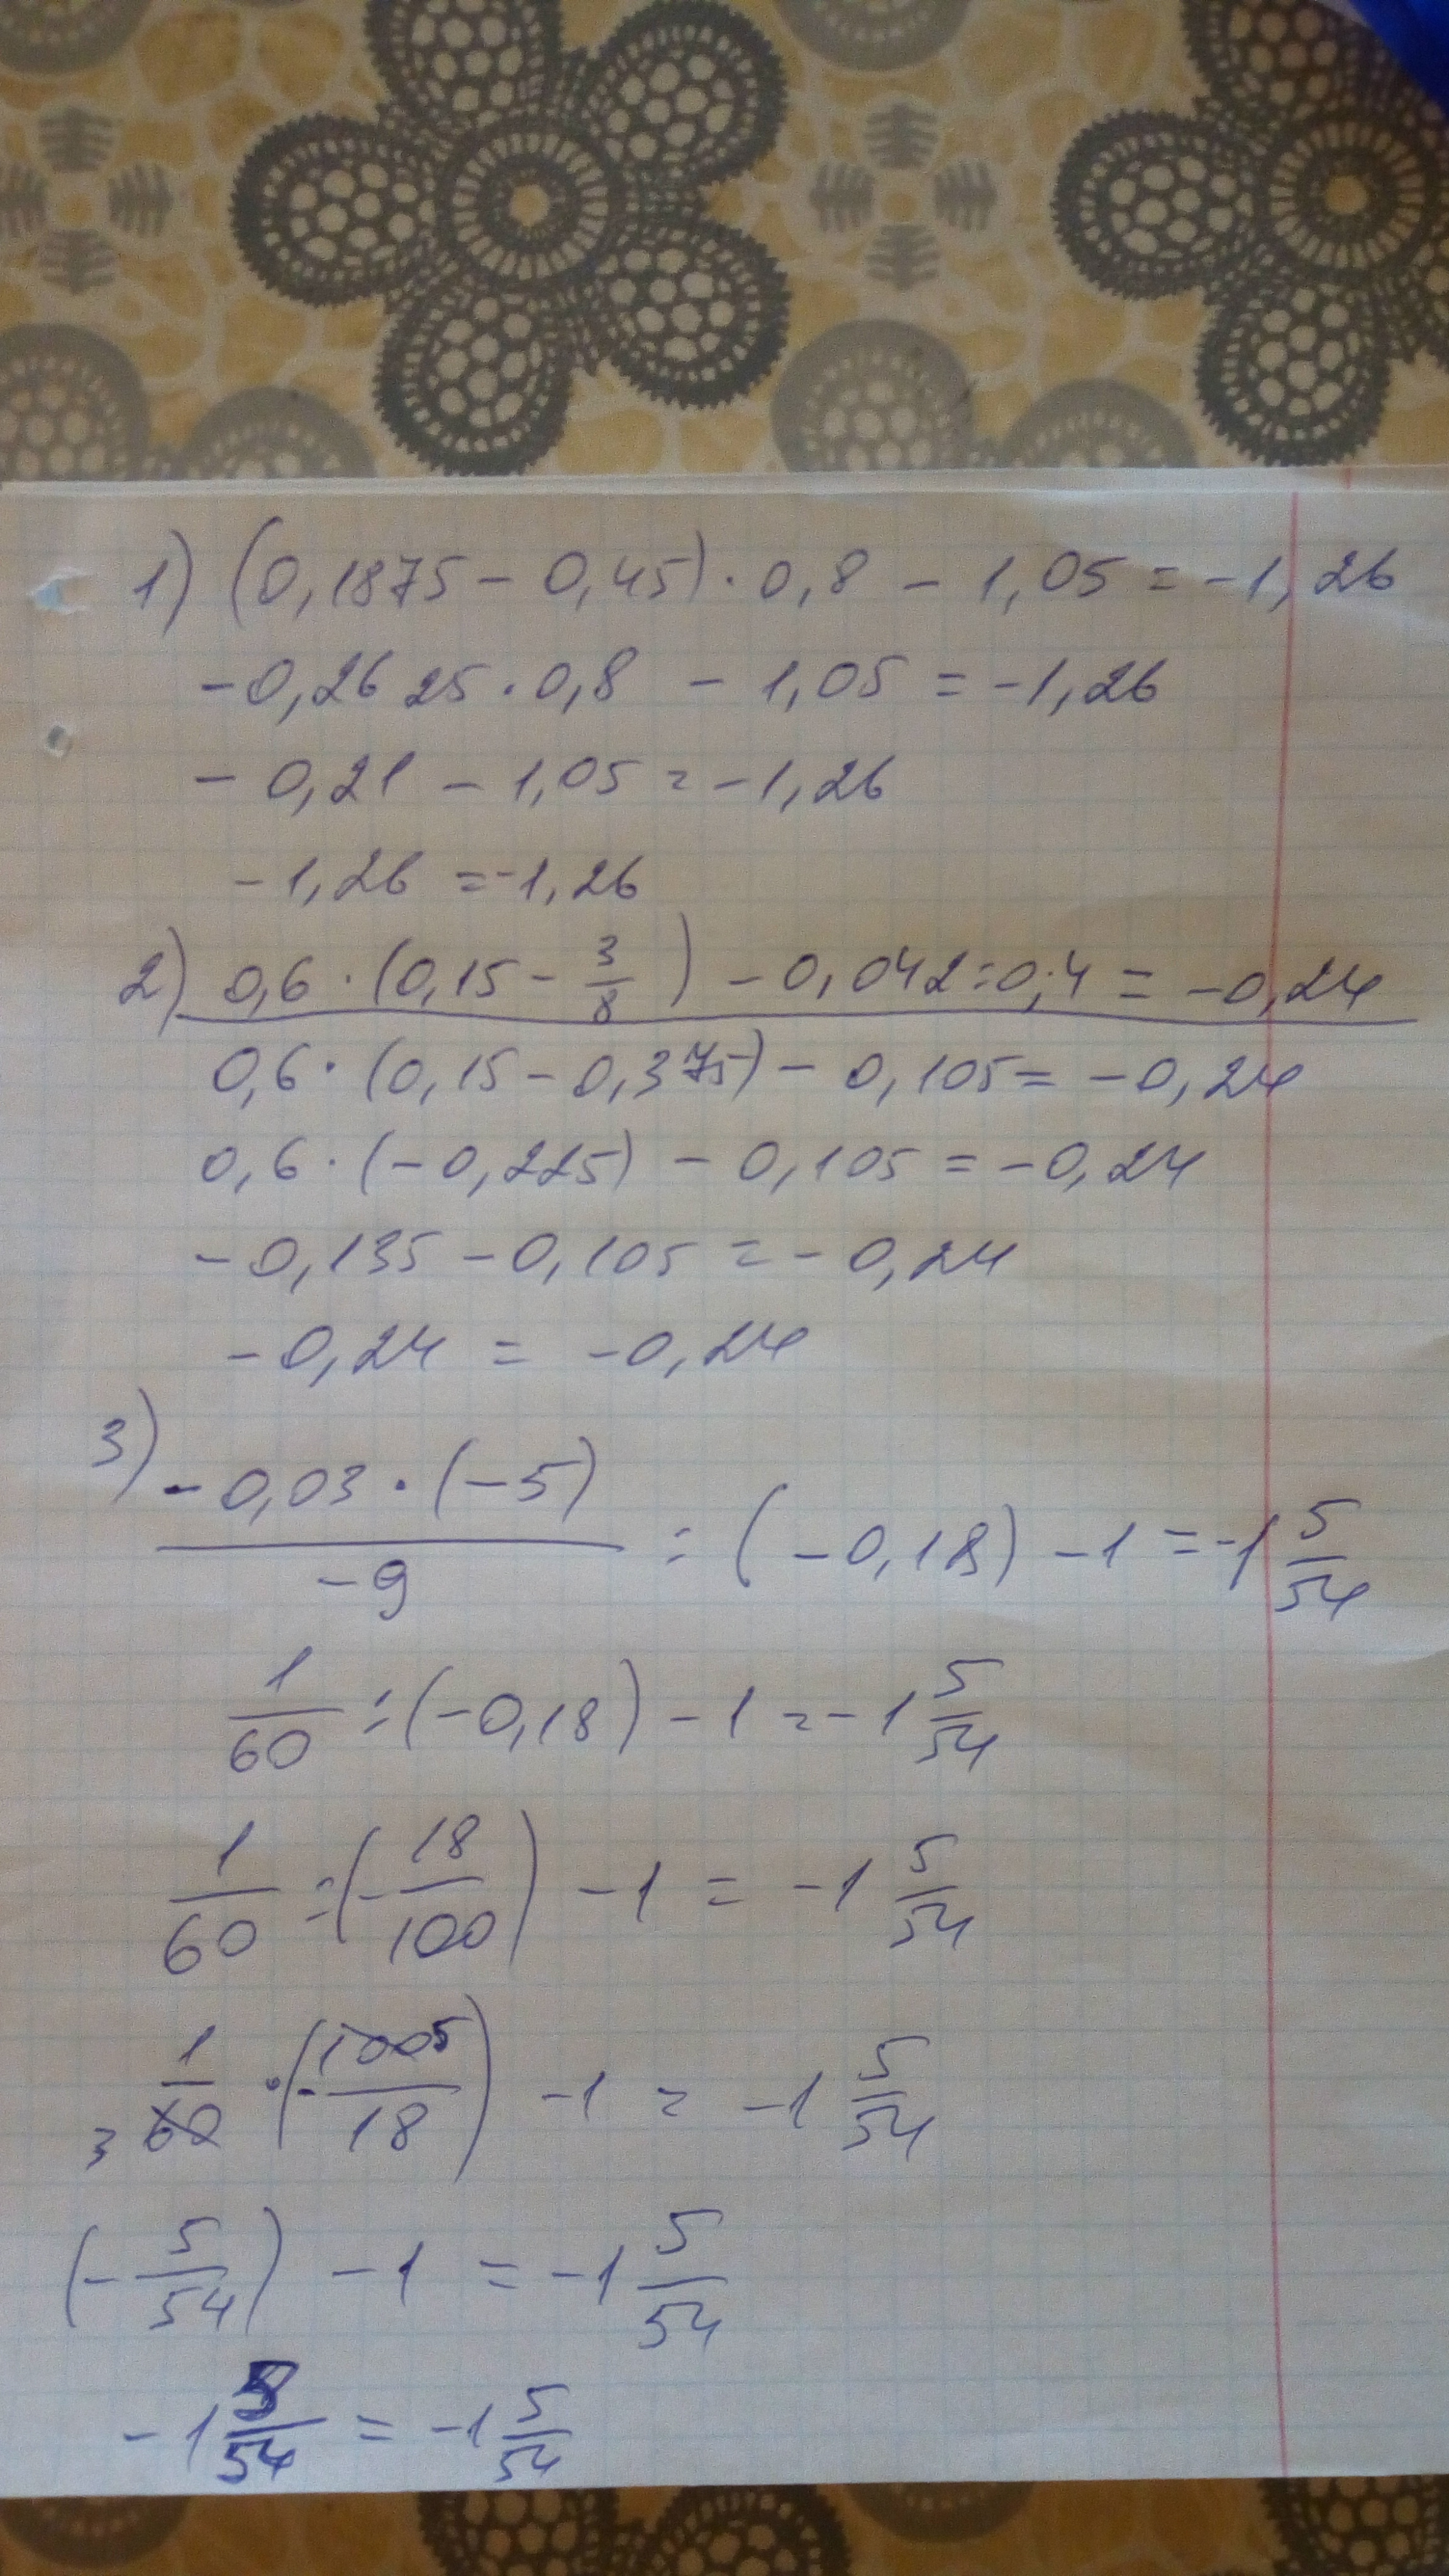 1) (0,1875 - 0,45) · 0,8 - 1,05 = -1,26
-0,2625 · 0,8 - 1,05 = -1,26
- 0,21 - 1,05 = -1,26
-1,26 = -1,26
2) 0,6 · (0,15 - 3/8) - 0,042 : 0,4 = -0,24
0,6 · (0,15 - 0,375) - 0,105 = -0,24
0,6 · (-0,225) - 0,105 = -0,24
-0,135 - 0,105 = -0,24
-0,24 = -0,24
3) -0,03 · (-5) / -9 : (-0,18) - 1 = -1 5/54
1/60 : (-0,18) - 1 = -1 5/54
1/60 : (-18/100) - 1 = -1 5/54
1/60 3 · (-100 5/18) - 1 = -1 5/54
(-5/54) - 1 = -1 5/54
-1 5/54 = -1 5/54